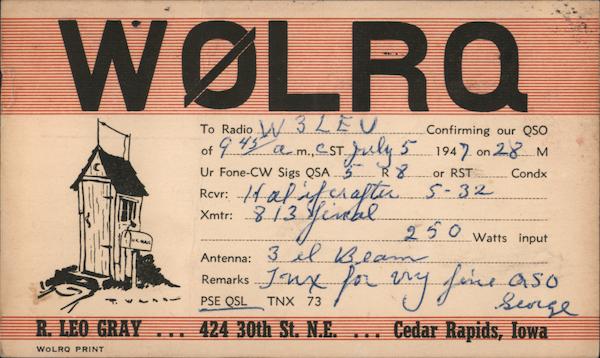 WØLRQ
To Radio W3LEV Confirming our QSO
of 9 45 a m., CST July 5 1947 on 28 M
Ur Fone-CW Sigs QSA 5 R 8 or RST Condx
Rcvr: Halicrafter S-32
Xmtr: 813 final
250 Watts input
Antenna: 3 el Beam
Remarks Tnx for vy fine QSO
PSE QSL TNX 73 George
U.S. MAIL
R. LEO GRAY ... 424 30th St. N.E. ... Cedar Rapids, Iowa
WØLRQ PRINT